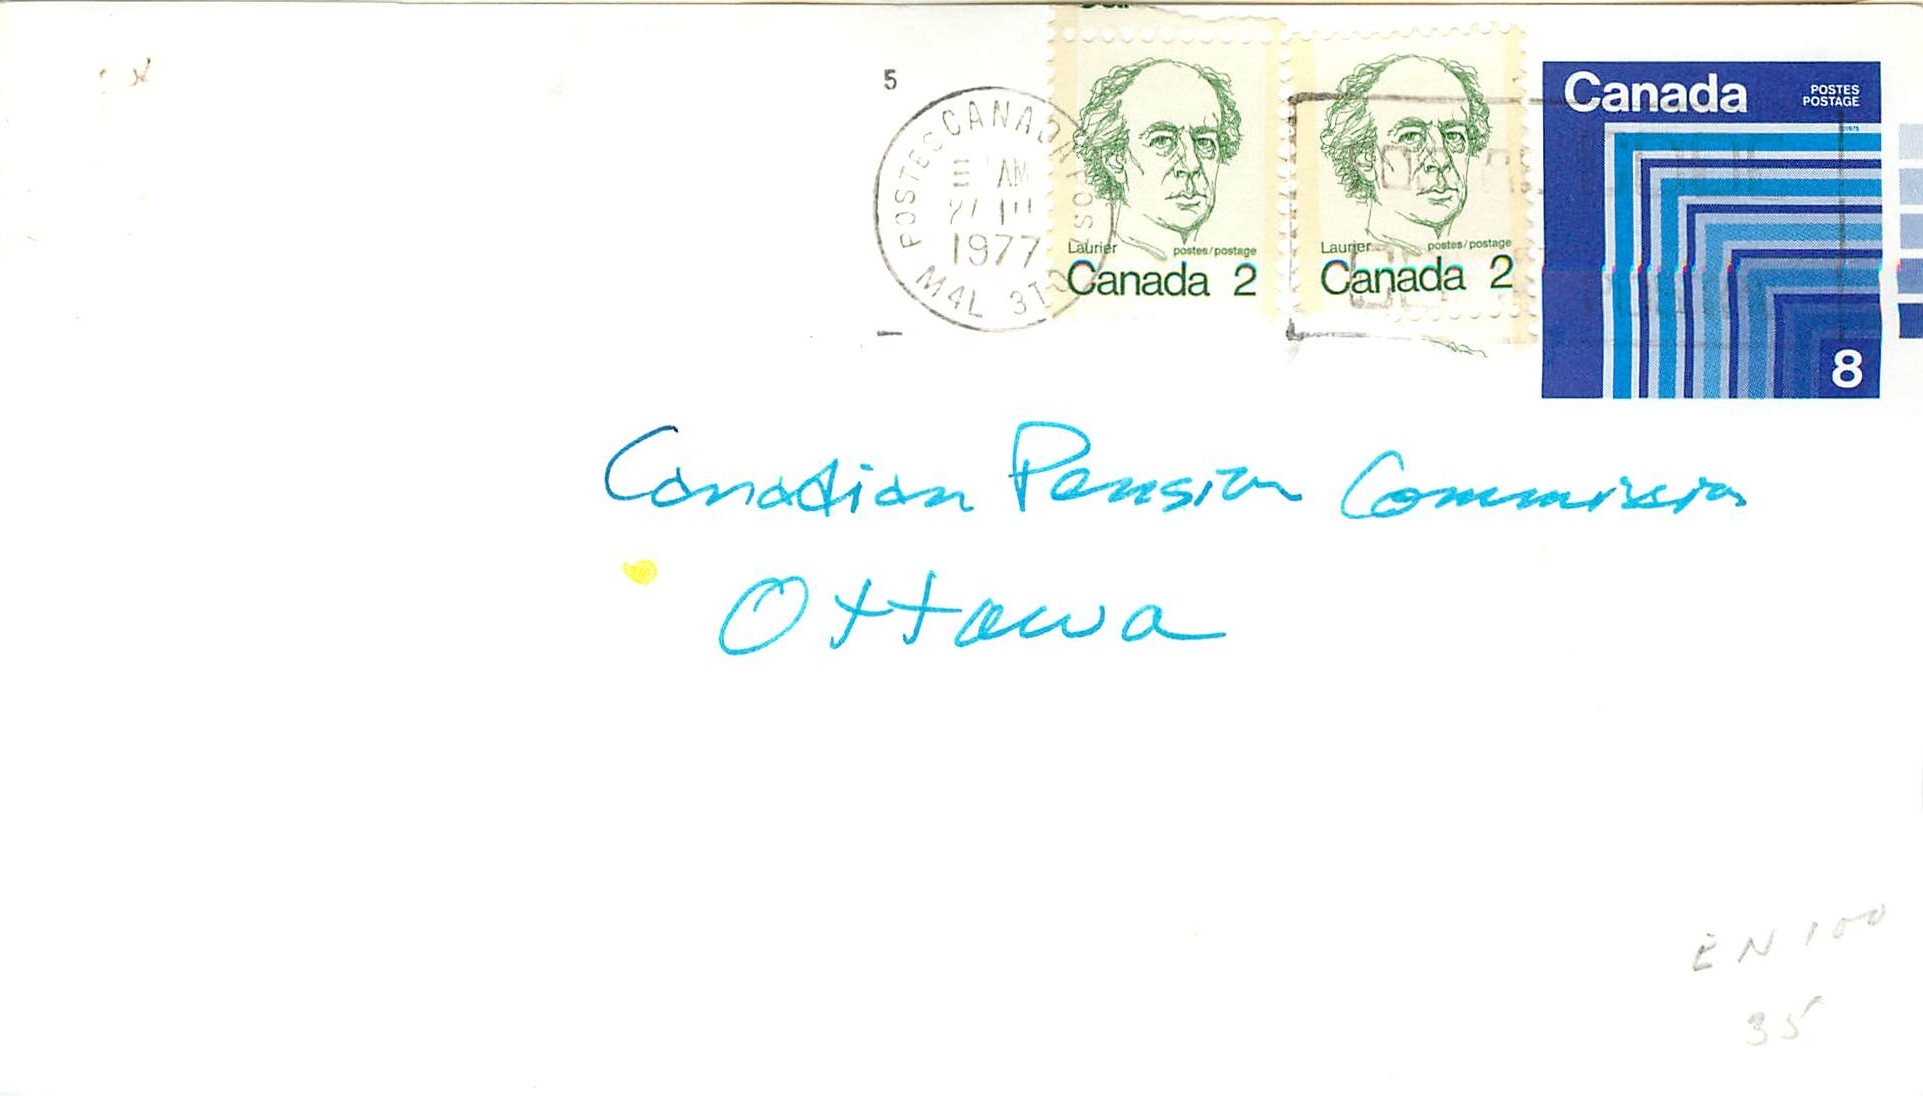 5
POSTES CANADA
AM
1977
M4L 3T2
Laurier postes/postage
Canada 2
Laurier postes/postage
Canada 2
Canada
POSTES
POSTAGE
8
Canadian Pension Commission
Ottawa
EN 100
35